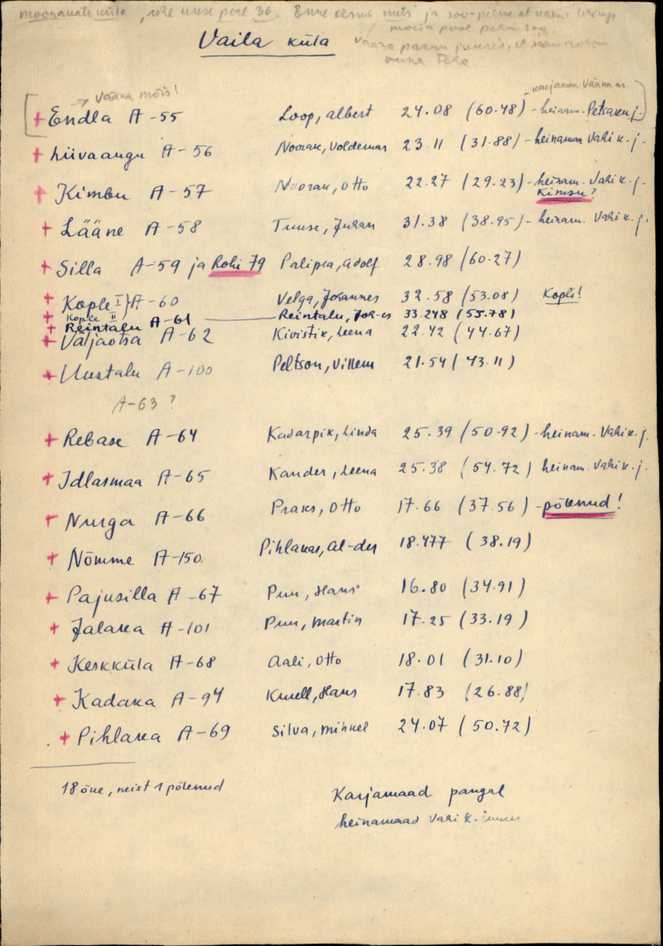 moonamäe küla, ühe uuse pere 36.
Vaila küla
Väärsa paar juures, et
→ Väana mõis!
karjamaa Väänas
+ Endla A-55 Loop, Albert 24.08 (60.48) - heinam. Petaaru j.
+ Liivaaugu A-56 Noorak, Voldemar 23.11 (31.88) - heinamaa Vahi k. j.
+ Kimbu A-57 Noorak, Otto 22.27 (29.23) - heinam. Vahi k. j.
Kimsu?
+ Lääne A-58 Tuuse, Juhan 31.38 (38.95) - heinam. Vahi k. j.
+ Silla A-59 ja Rohi 79 Palipea, Adolf 28.98 (60.27)
+ Kople I A-60 Velga, Johannes 32.58 (53.08) Kopli!
+ Kople II
+ Reintalu A-61 Reintalu, Joh-es 33.248 (55.781)
+ Väljaotsa A-62 Kivistik, Leena 22.42 (44.67)
+ Uuetalu A-100 Peltson, Villem 21.54 (43.11)
A-63 ?
+ Rebase A-64 Kadarpik, Linda 25.39 (50.92) - heinam. Vahi k. j.
+ Idlasmaa A-65 Kander, Leena 25.38 (54.72) heinam. Vahi k. j.
+ Nurga A-66 Praks, Otto 17.66 (37.56) - põlenud!
+ Nõmme A-150 Pihlakas, Al-der 18.477 (38.19)
+ Pajusilla A-67 Puu, Hans 16.80 (34.91)
+ Jalaka A-101 Puu, Martin 17.25 (33.19)
+ Keskküla A-68 Aali, Otto 18.01 (31.10)
+ Kadaka A-94 Knuell, Hans 17.83 (26.88)
+ Pihlaka A-69 Silva, Mihkel 24.07 (50.72)
18 õue, neist 1 põlenud
Karjamaad pangal
heinamaad Vahi k. juures